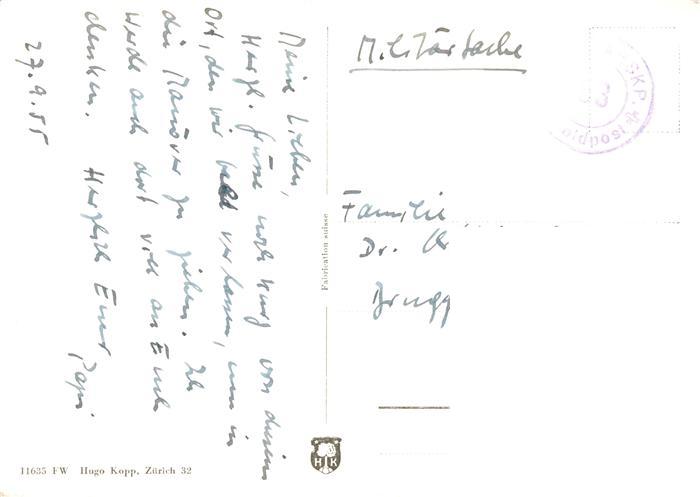 Meine Lieben,
Herzl. Grüsse noch kurz von diesem
Ort, den wir bald verlassen, um in
die Manöver zu ziehen. Ich
werde auch dort viel an Euch
denken. Herzlich Euer Papi
27.9.55
Militärsache
SKP.
Feldpost
Familie
Dr.
Brugg
Fabrication suisse
H K
11635 FW Hugo Kopp, Zürich 32